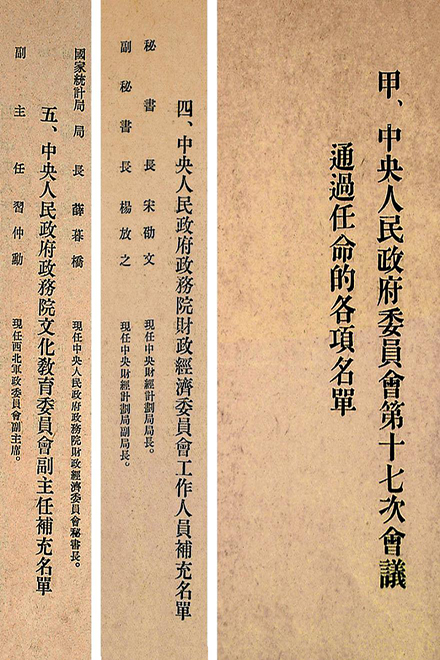 甲、中央人民政府委員會第十七次會議
通過任命的各項名單
四、中央人民政府政務院財政經濟委員會工作人員補充名單
秘書長 宋劭文 現任中央財經計劃局局長。
副秘書長 楊放之 現任中央財經計劃局副局長。
國家統計局局長 薛暮橋 現任中央人民政府政務院財政經濟委員會秘書長。
五、中央人民政府政務院文化教育委員會副主任補充名單
副主任 習仲勳 現任西北軍政委員會副主席。